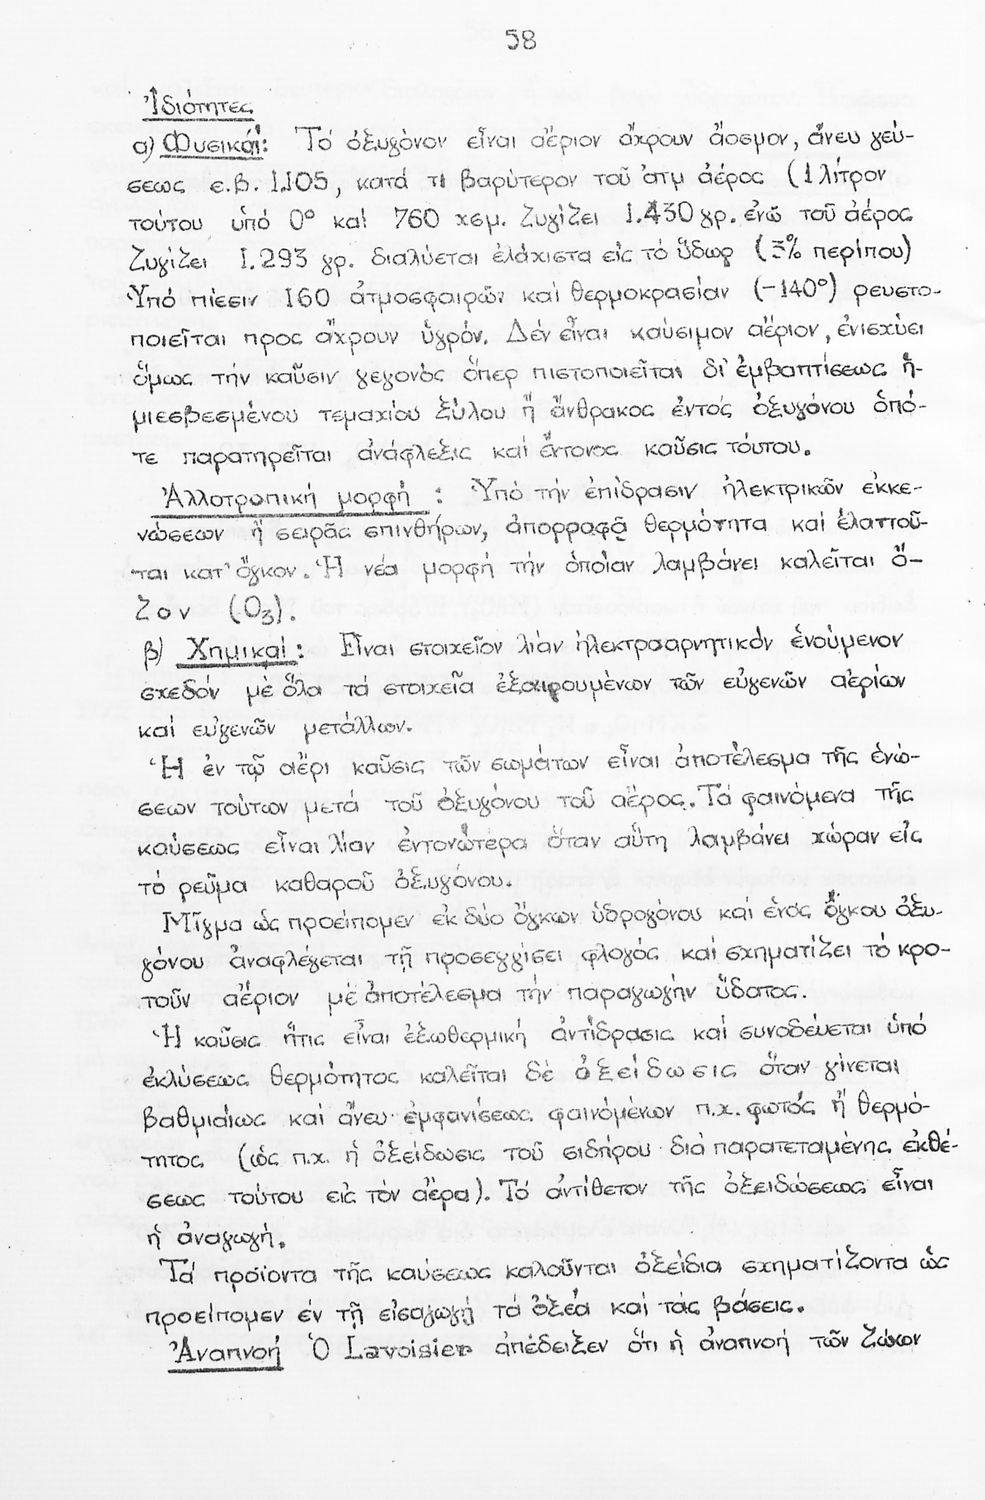 58
Ἰδιότητες
α) Φυσικαί: Τό ὀξυγόνον εἶναι αἔριον ἄχρουν ἄοσμον, ἄνευ γεύ-
σεως ε.β. 1.105, κατά τι βαρύτερον τοῦ ἀτμ ἀέρος (1 λίτρον
τούτου ὑπό 0° καί 760 χσμ. ζυγίζει 1.430 γρ. ἐνῶ τοῦ ἀέρος
ζυγίζει 1.293 γρ. διαλύεται ἐλάχιστα εἰς τό ὕδωρ (3% περίπου)
Ὑπό πίεσιν 160 ἀτμοσφαιρῶν καί θερμοκρασίαν (-140°) ρευστο-
ποιεῖται προς ἄχρουν ὑγρόν. Δέν εἶναι καύσιμον αἔριον, ἐνισχύει
ὅμως τήν καῦσιν γεγονός ὅπερ πιστοποιεῖται δι' ἐμβαπτίσεως ἡ-
μιεσβεσμένου τεμαχίου ξύλου ἤ ἄνθρακος ἐντός ὀξυγόνου ὁπό-
τε παρατηρεῖται ἀνάφλεξις καί ἔντονος καῦσις τούτου.
Ἀλλοτροπική μορφή : Ὑπό τήν ἐπίδρασιν ἠλεκτρικῶν ἐκκε-
νώσεων ἤ σειρᾶς σπινθήρων, ἀπορροφᾶ θερμότητα καί ἐλαττοῦ-
ται κατ' ὄγκον. Ἡ νέα μορφή τήν ὁποίαν λαμβάνει καλεῖται ὄ-
ζον (O₃).
β) Χημικαί: Εἶναι στοιχεῖον λίαν ἠλεκτροαρνητικόν ἑνούμενον
σχεδόν μέ ὅλα τά στοιχεῖα ἐξαιρουμένων τῶν εὐγενῶν ἀερίων
καί εὐγενῶν μετάλλων.
Ἡ ἐν τῷ αἔρι καῦσις τῶν σωμάτων εἶναι ἀποτέλεσμα τῆς ἑνώ-
σεων τούτων μετά τοῦ ὀξυγόνου τοῦ αἔρος. Τά φαινόμενα τῆς
καύσεως εἶναι λίαν ἐντονώτερα ὅταν αὕτη λαμβάνει χώραν εἰς
τό ρεῦμα καθαροῦ ὀξυγόνου.
Μῖγμα ὡς προείπομεν ἐκ δύο ὄγκων ὑδρογόνου καί ἑνός ὄγκου ὀξυ-
γόνου ἀναφλέγεται τῇ προσεγγίσει φλογός καί σχηματίζει τό κρο-
τοῦν αἔριον μέ ἀποτέλεσμα τήν παραγωγήν ὕδατος.
Ἡ καῦσις ἥτις εἶναι ἐξωθερμική ἀντίδρασις καί συνοδεύεται ὑπό
ἐκλύσεως θερμότητος καλεῖται δέ ὀξείδωσις ὅταν γίνεται
βαθμιαίως καί ἄνευ ἐμφανίσεως φαινομένων π.χ. φωτός ἤ θερμό-
τητος (ὡς π.χ. ἡ ὀξείδωσις τοῦ σιδήρου διά παρατεταμένης ἐκθέ-
σεως τούτου εἰς τόν αἔρα). Τό ἀντίθετον τῆς ὀξειδώσεως εἶναι
ἡ ἀναγωγή.
Τά προϊόντα τῆς καύσεως καλοῦνται ὀξείδια σχηματίζοντα ὡς
προείπομεν ἐν τῇ εἰσαγωγῇ τά ὀξέα καί τάς βάσεις.
Ἀναπνοή Ὁ Lavoisier ἀπέδειξεν ὅτι ἡ ἀναπνοή τῶν ζώων